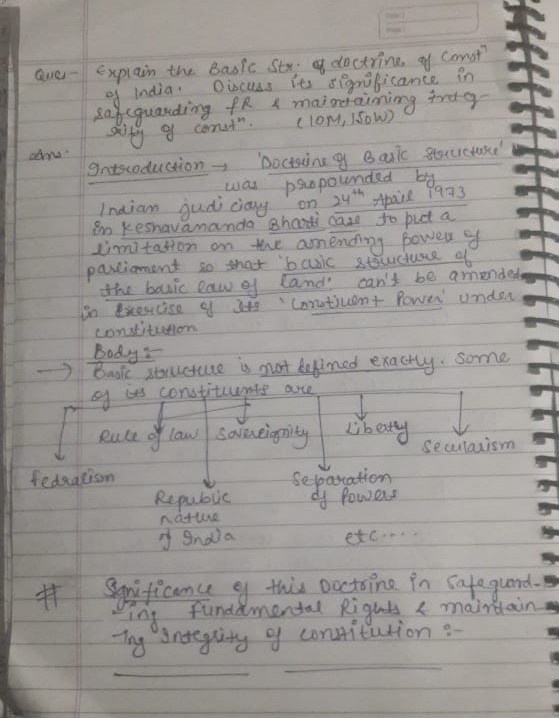 Que:- Explain the Basic Str. of doctrine of Constⁿ
of India. Discuss its significance in
safeguarding FR & maintaining integ-
rity of constⁿ. (10M, 150W)
Ans:
Introduction → 'Doctrine of Basic Structure'
was propounded by
Indian judiciary on 24th April 1973
in Keshavananda Bharti case to put a
limitation on the amending power of
parliament so that 'basic structure of
the basic law of land' can't be amended
in Exercise of its 'Constituent Power' under
constitution
Body:-
→ Basic structure is not defined exactly. Some
of its constituents are
Rule of law Sovereignity Liberty
Secularism
fedralism Separation
of Powers
Republic
nature
of India etc....
# Significance of this Doctrine in Safeguard-
-ing Fundamental Rights & maintain
-ing Integrity of constitution :-